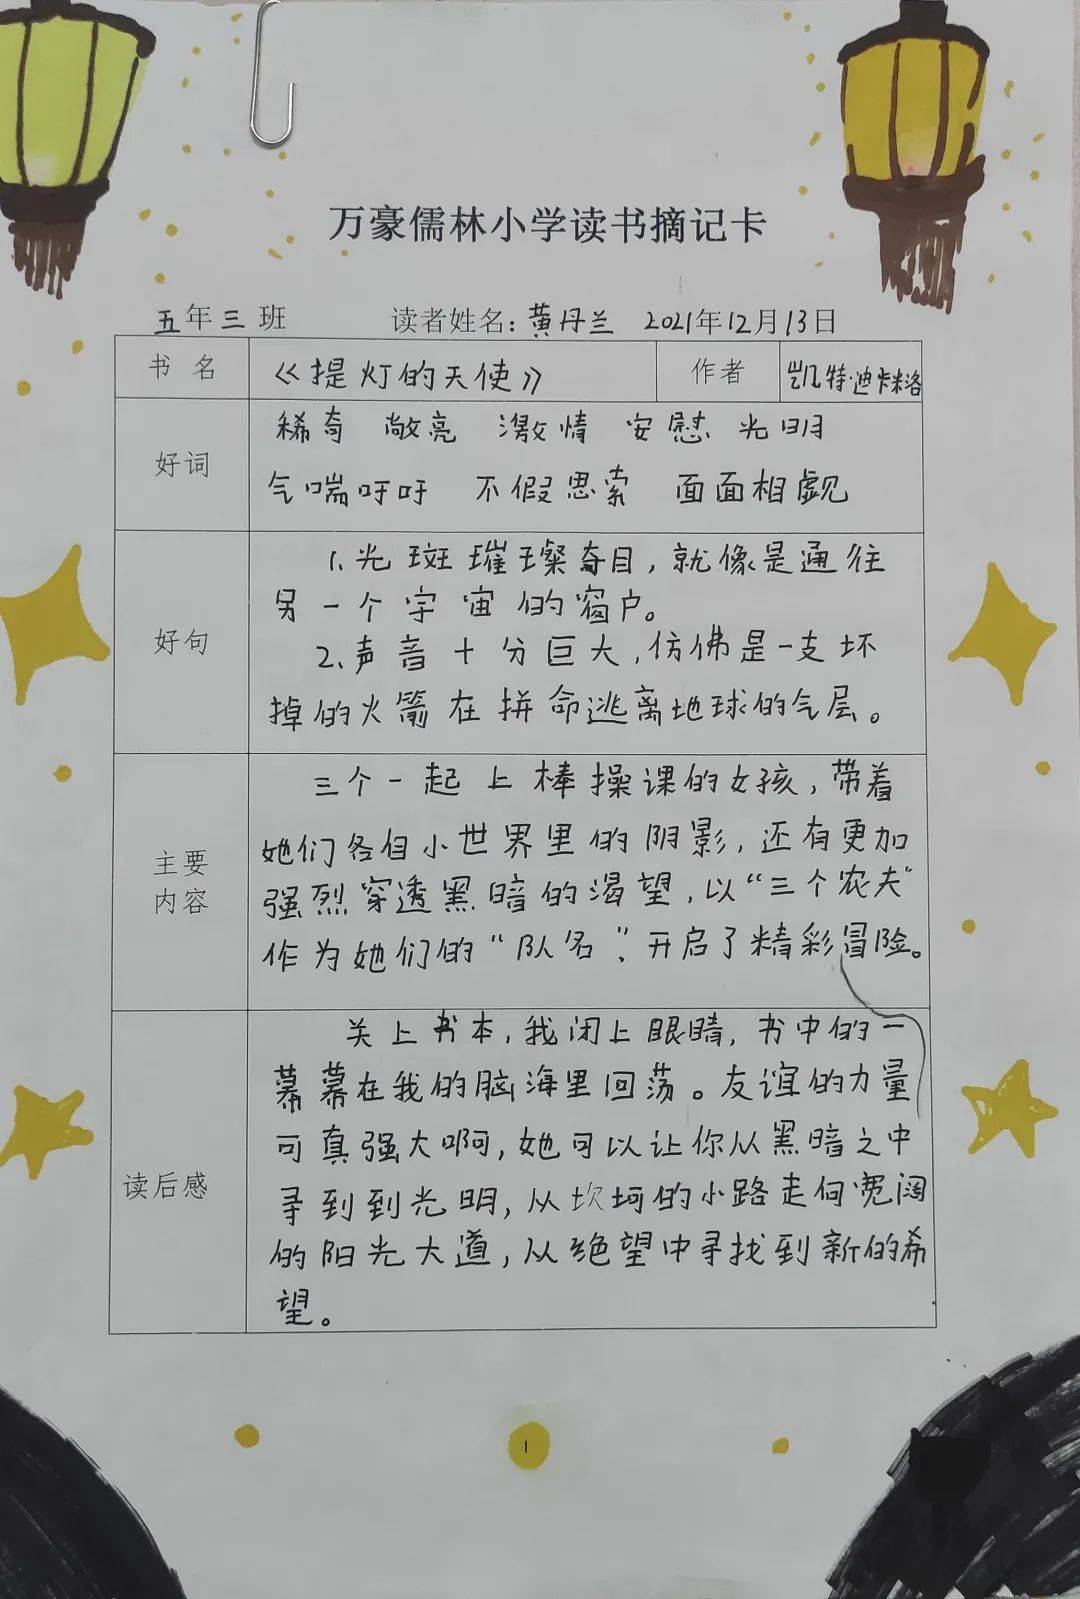 万豪儒林小学读书摘记卡
五年三班 读者姓名：黄丹兰 2021年12月13日
书名 《提灯的天使》 作者 凯特·迪卡米洛
好词
稀奇 敞亮 激情 安慰 光明
气喘吁吁 不假思索 面面相觑
好句
1、光斑璀璨夺目，就像是通往
另一个宇宙的窗户。
2、声音十分巨大，仿佛是一支坏
掉的火箭在拼命逃离地球的气层。
主要
内容
三个一起上棒操课的女孩，带着
她们各自小世界里的阴影，还有更加
强烈穿透黑暗的渴望，以“三个农夫”
作为她们的“队名”，开启了精彩冒险。
读后感
关上书本，我闭上眼睛，书中的一
幕幕在我的脑海里回荡。友谊的力量
可真强大啊，她可以让你从黑暗之中
寻到到光明，从坎坷的小路走向宽阔
的阳光大道，从绝望中寻找到新的希
望。
1